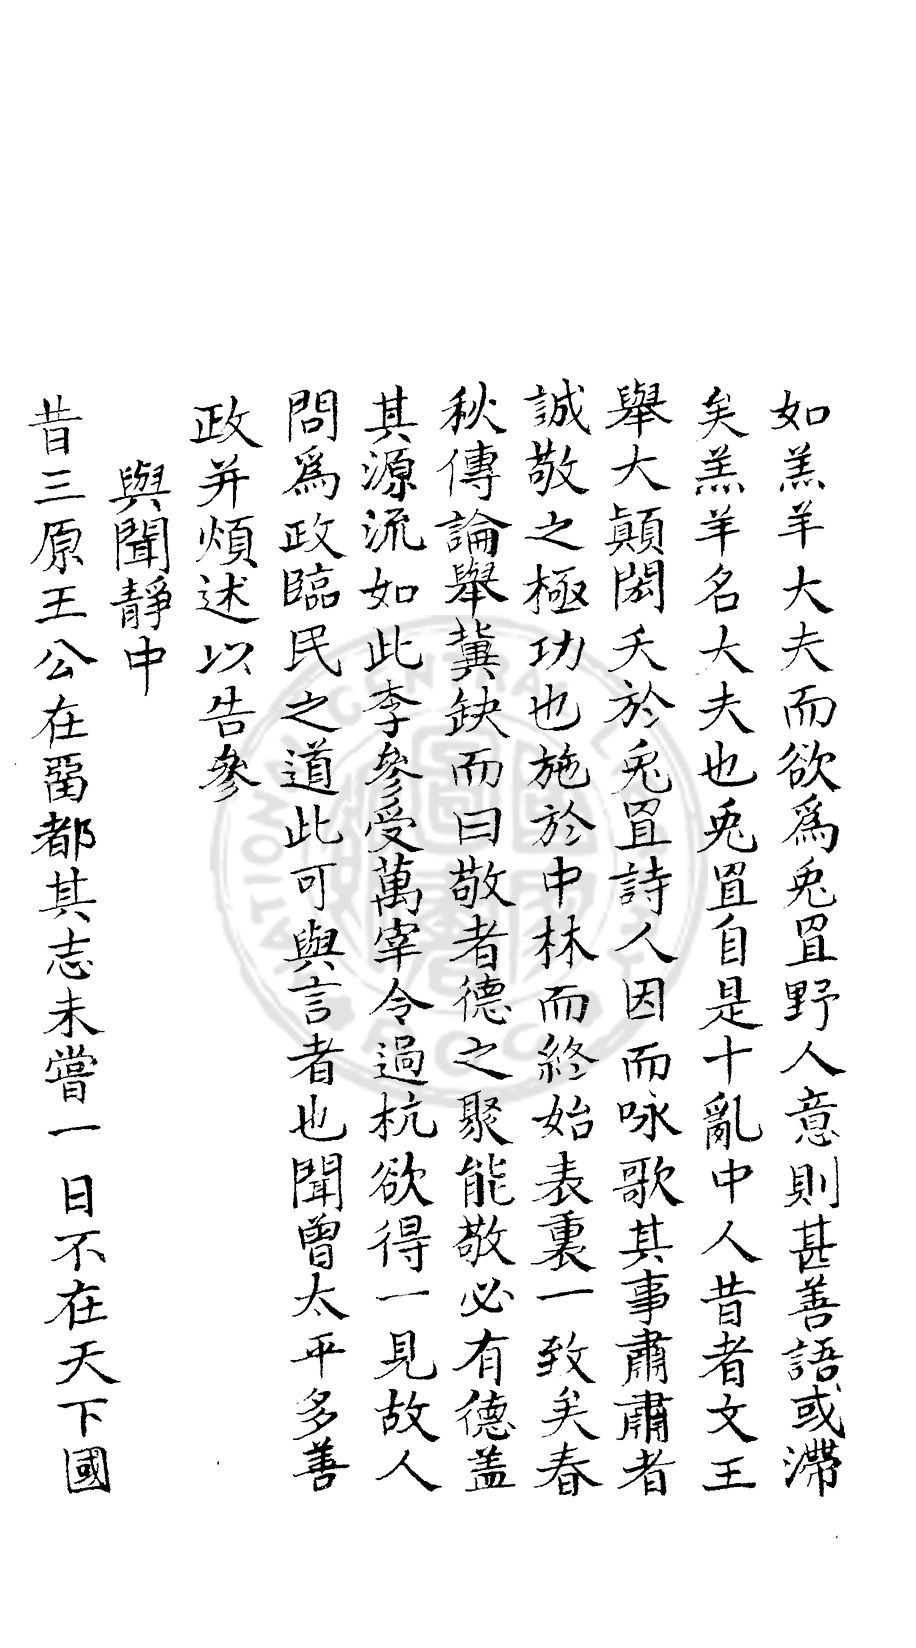 如羔羊大夫而欲爲兎罝野人意則甚善語或滯
矣羔羊名大夫也兎罝自是十亂中人昔者文王
舉大顚閎夭於兎罝詩人因而咏歌其事肅肅者
誠敬之極功也施於中林而終始表裏一致矣春
秋傳論舉冀缺而曰敬者德之聚能敬必有德盖
其源流如此李參受萬宰令過杭欲得一見故人
問爲政臨民之道此可與言者也聞曾太平多善
政并煩述以告參
與聞靜中
昔三原王公在畱都其志未嘗一日不在天下國